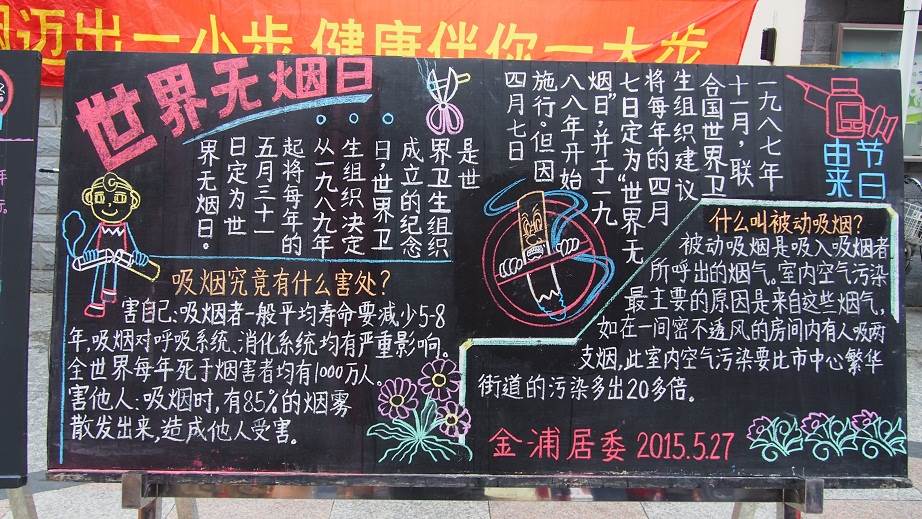 迈出一小步 健康伴你一大步
世界无烟日
节日
由来
一九八七年
十一月，联
合国世界卫
生组织建议
将每年的四月
七日定为“世界无
烟日”，并于一九
八八年开始
施行。但因
四月七日
是世
界卫生组织
成立的纪念
日，世界卫
生组织决定
从一九八九年
起将每年的
五月三十一
日定为世
界无烟日。
吸烟究竟有什么害处?
害自己:吸烟者一般平均寿命要减少5-8
年,吸烟对呼吸系统、消化系统均有严重影响。
全世界每年死于烟害者均有1000万人。
害他人:吸烟时,有85%的烟雾
散发出来,造成他人受害。
什么叫被动吸烟?
被动吸烟是吸入吸烟者
所呼出的烟气。室内空气污染
最主要的原因是来自这些烟气,
如在一间密不透风的房间内有人吸两
支烟,此室内空气污染要比市中心繁华
街道的污染多出20多倍。
金浦居委 2015.5.27